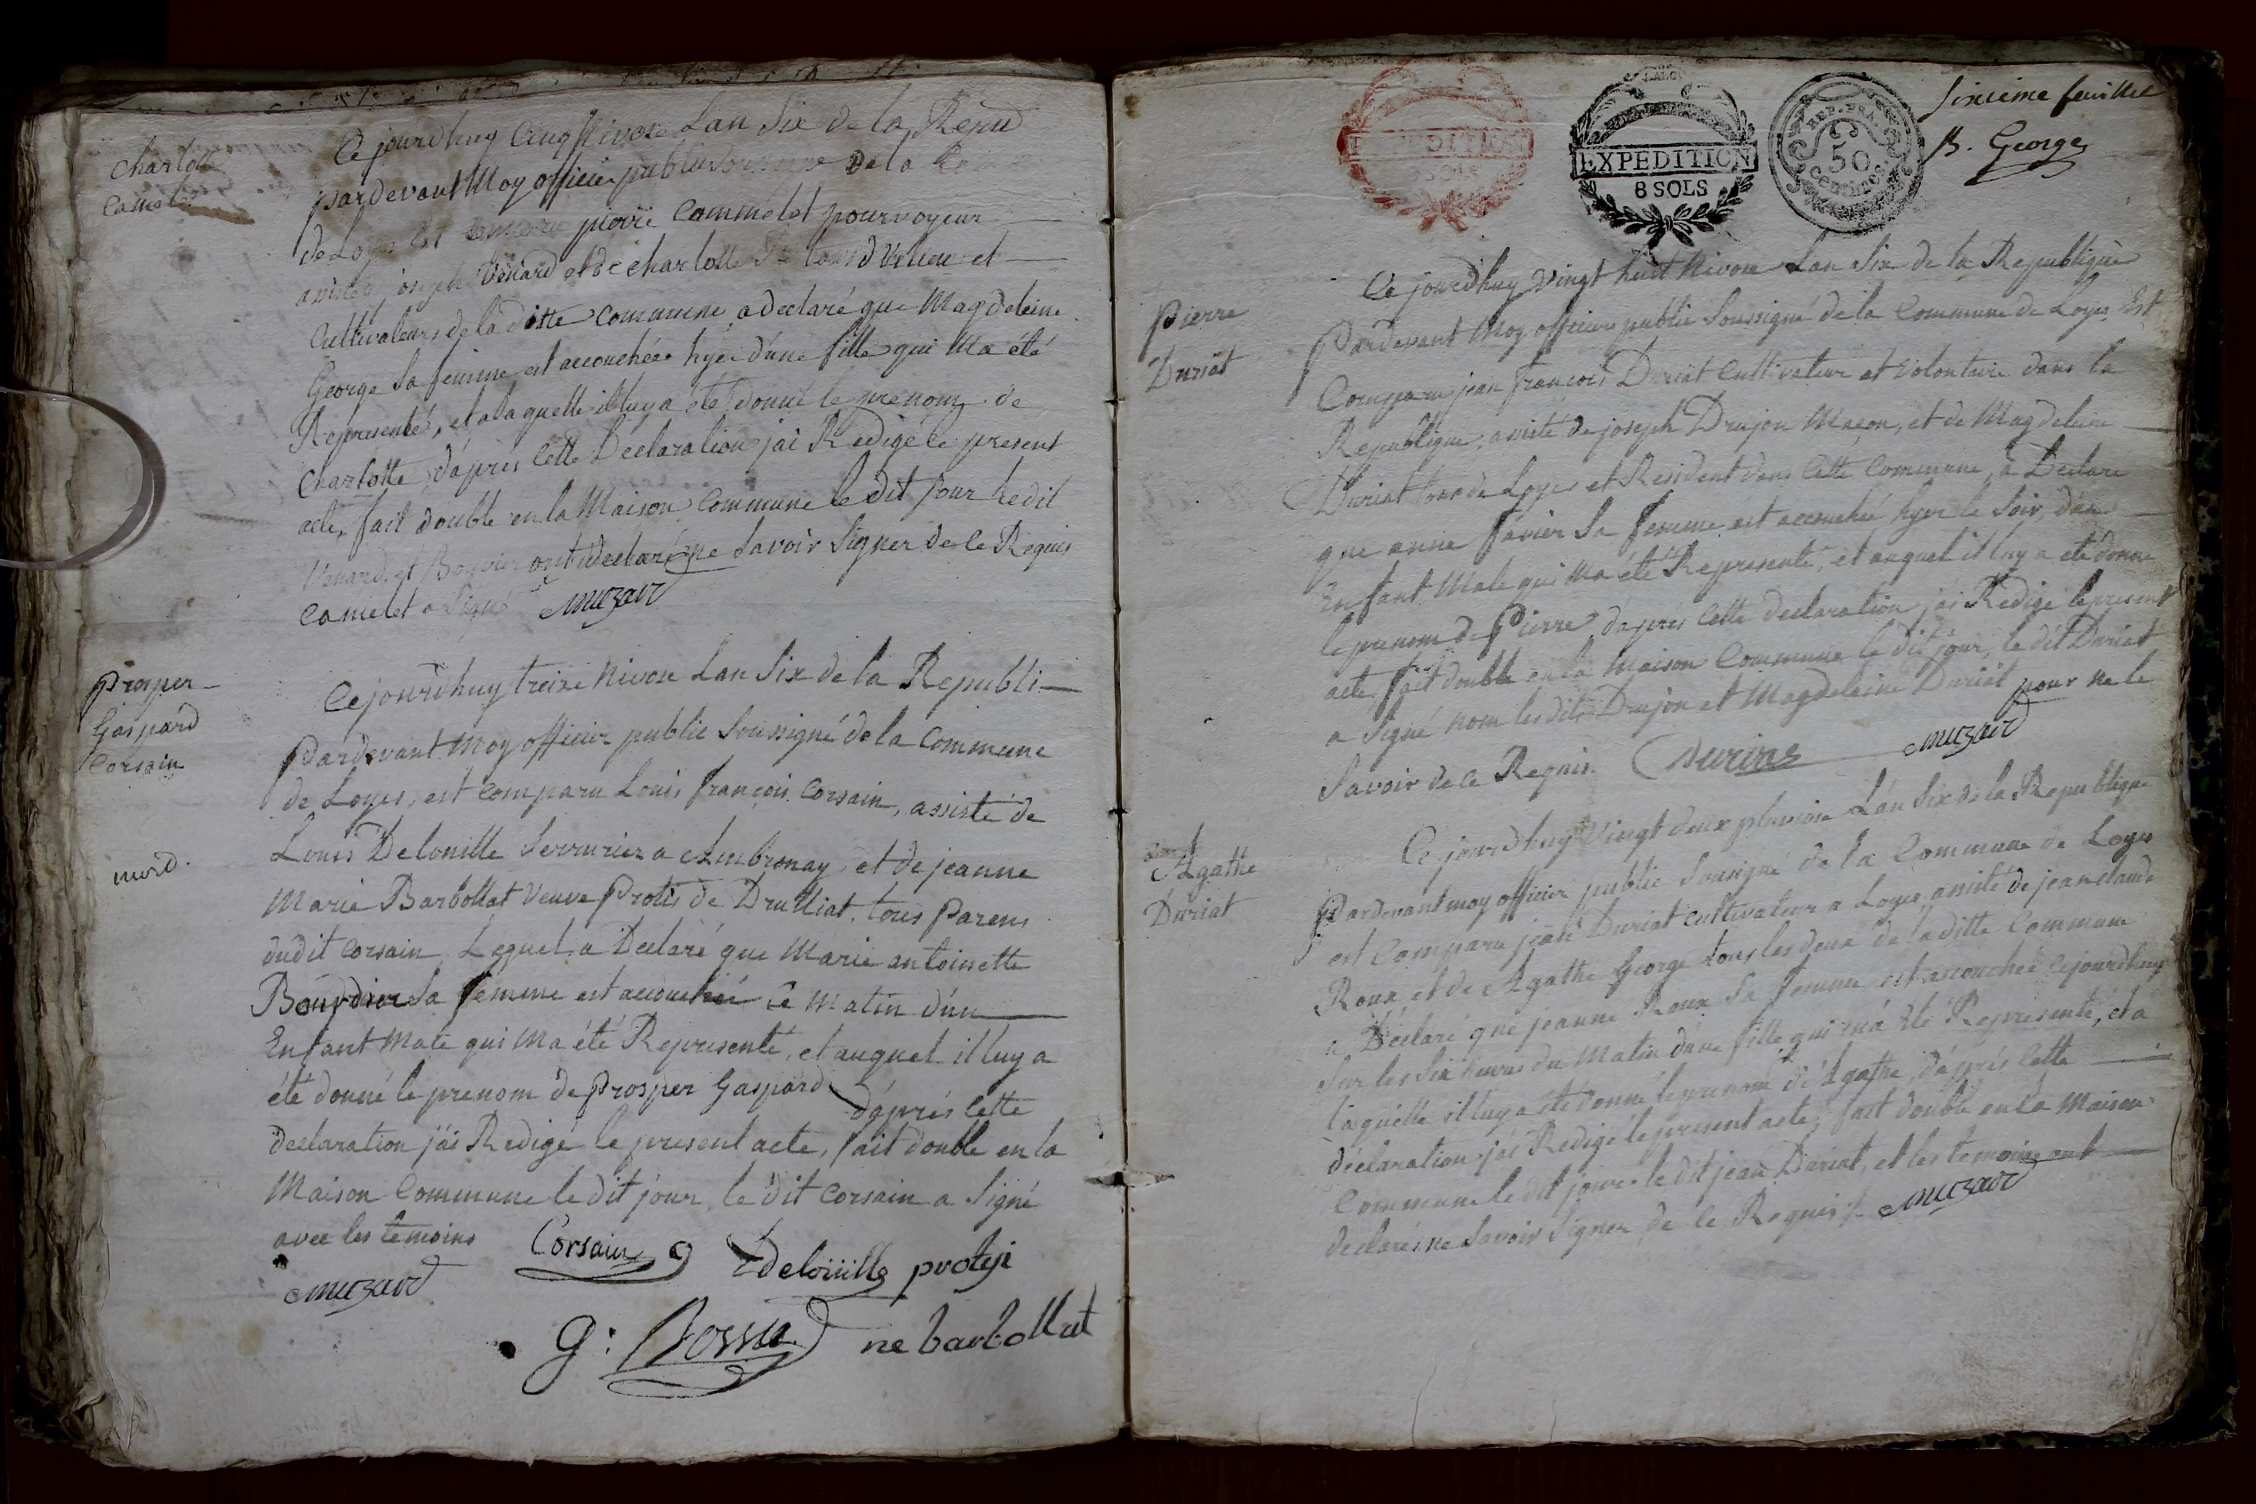 Charlotte
Camelet
Ce jourdhuy Cinq Nivose Lan Six de la Repub
pardevant Moy officier public Soussigné de la
de Loyes est pierre Commelet pourvoyeur
assisté joseph Venard et de charlotte et
Cultivateurs de la ditte commune, a declaré que Magdeleine
George Sa femme est accouchée hyer d'une fille qui Ma été
Representé, et a laquelle il luy a été donné le prenom de
Charlotte d'aprés Cette Declaration jai Redigé le present
acte, fait double en la Maison Commune le dit jour le dit
Venard et Bouvier ont declaré ne Savoir Signer de ce Requis
Camelet a Signé Muzard
Prosper
Gaspard
Corsain
mord.
Ce jourdhuy treize Nivose Lan Six de la Republi
Pardevant Moy officier public Soussigné de la Commune
de Loyes, est Comparu Louis françois Corsain, assisté de
Louis Delouille Serrurier a Ambronay et de jeanne
Marie Barbollat Veuve Protés de Druilliat. tous Parens
dudit Corsain Lequel a Declaré que Marie antoinette
Bourdier Sa femme est accouchée Ce Matin d'un
Enfant Male qui Ma été Representé, et auquel il luy a
été donné le prenom de Prosper Gaspard d'aprés Cette
declaration j'ai Redigé le present acte, fait double en la
Maison Commune le dit jour, le dit Corsain a Signé
avec les temoins
Corsain Delouille proteji
Muzard
G: Bossu ne barbollat
Sixieme feuillet
B. George
EXPEDITION
8 SOLS
REP. FRA.
50
Centimes
Pierre
Duriat
Ce jourdhuy Vingt huit Nivose Lan Six de la Republique
Pardevant Moy officier public Soussigné de la Commune de Loyes Est
Comparu jean françois Duriat Cultivateur et Volontaire dans la
Republique, assisté de joseph Drujon Maçon, et de Magdeleine
Duriat tous de Loyes et Resident dans Cette Commune, a Declare
que anne favier Sa femme est accouchée hyer le Soir, d'un
Enfant Male qui Ma été Representé, et auquel il luy a été donné
le prenom de Pierre d'aprés Cette declaration jai Redigé le present
acte, fait double en la Maison Commune le dit jour, le dit Duriat
a Signé non les dits Drujon et Magdeleine Duriat pour ne le
Savoir de ce Requis. Duriat Muzard
Agathe
Duriat
Ce jourdhuy Vingt deux pluviose Lan Six de la Republique
Pardevant moy officier public Soussigné de la Commune de Loyes
est Comparu jean Duriat Cultivateur a Loyes, assisté de jean claude
Roux et de Agathe George tous les deux de la ditte Commune
a Déclaré que jeanne Roux Sa femme est accouchée cejourdhuy
Sur les Six heures du Matin d'une fille qui m'a été Representé, et a
laquelle il luy a été donné le prenom de Agathe, d'aprés Cette
déclaration j'ai Redigé le present acte, fait double en la Maison
Commune le dit jour. le dit jean Duriat, et les temoins ont
declarés ne Savoir Signer de ce Requis Muzard